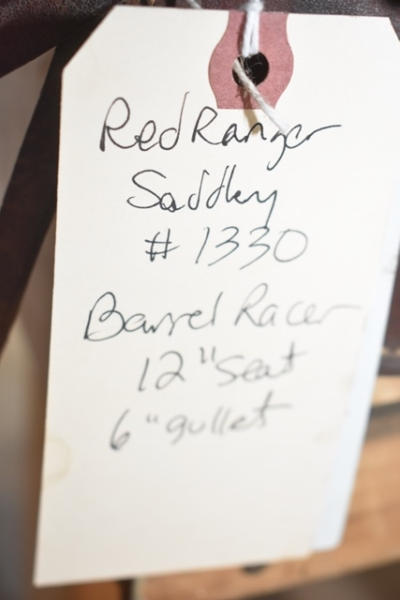 Red Ranger
Saddlry
# 1330
Barrel Racer
12" Seat
6" gullet